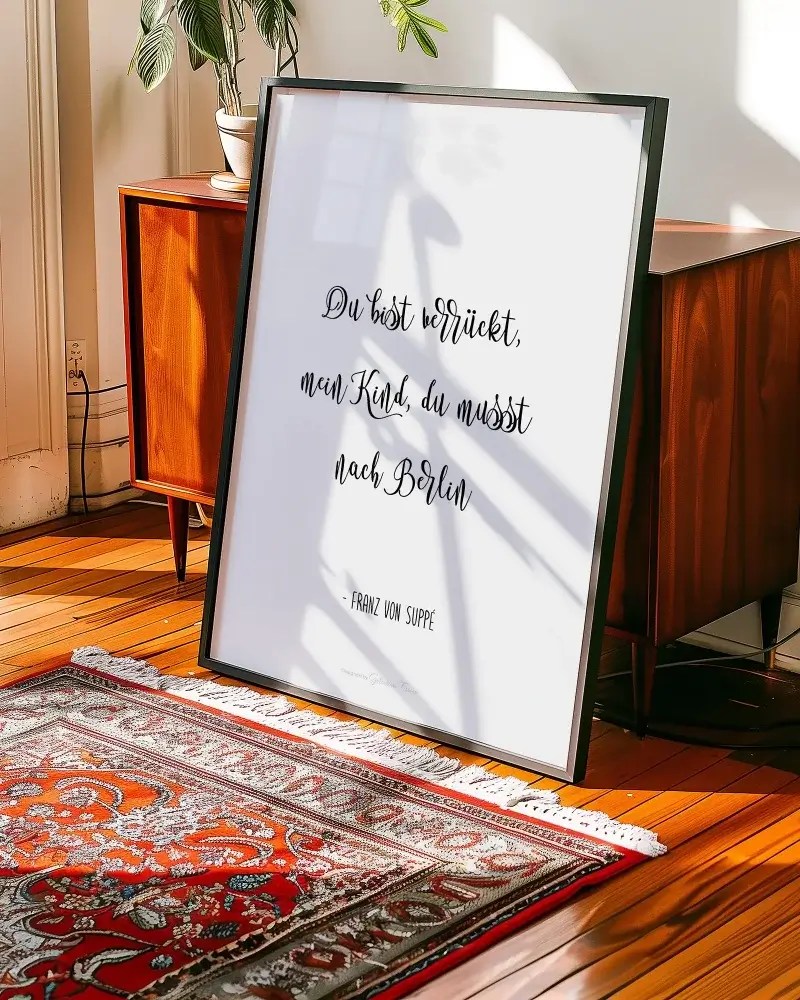 Du bist verrückt,
mein Kind, du musst
nach Berlin
- FRANZ VON SUPPÉ